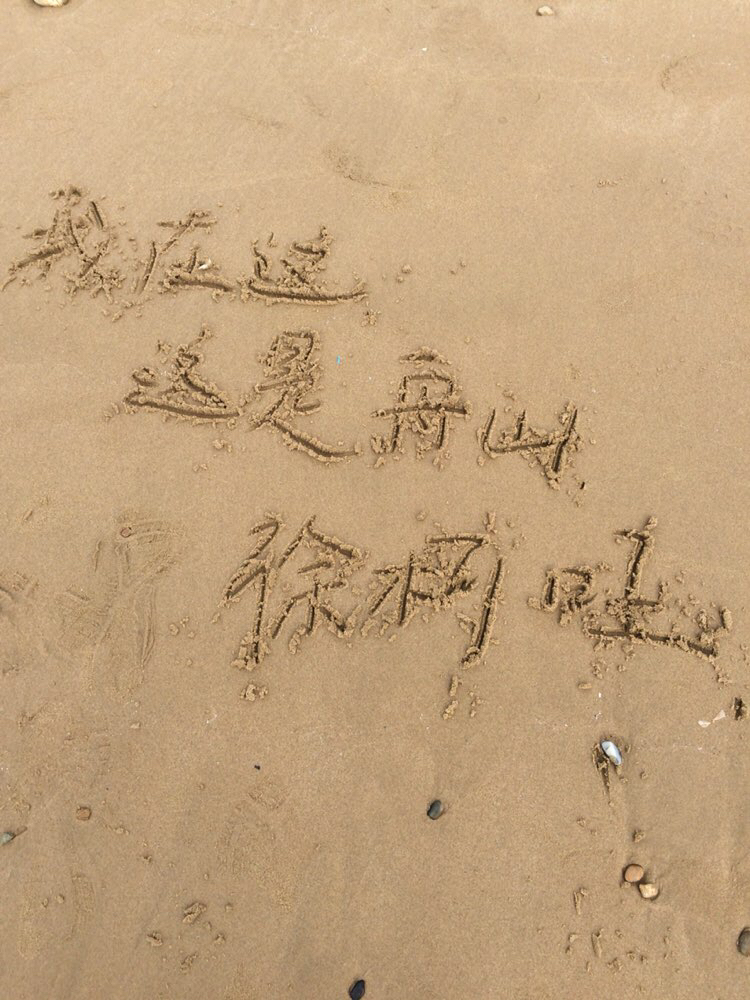 我在这
这是舟山
徐桐哇